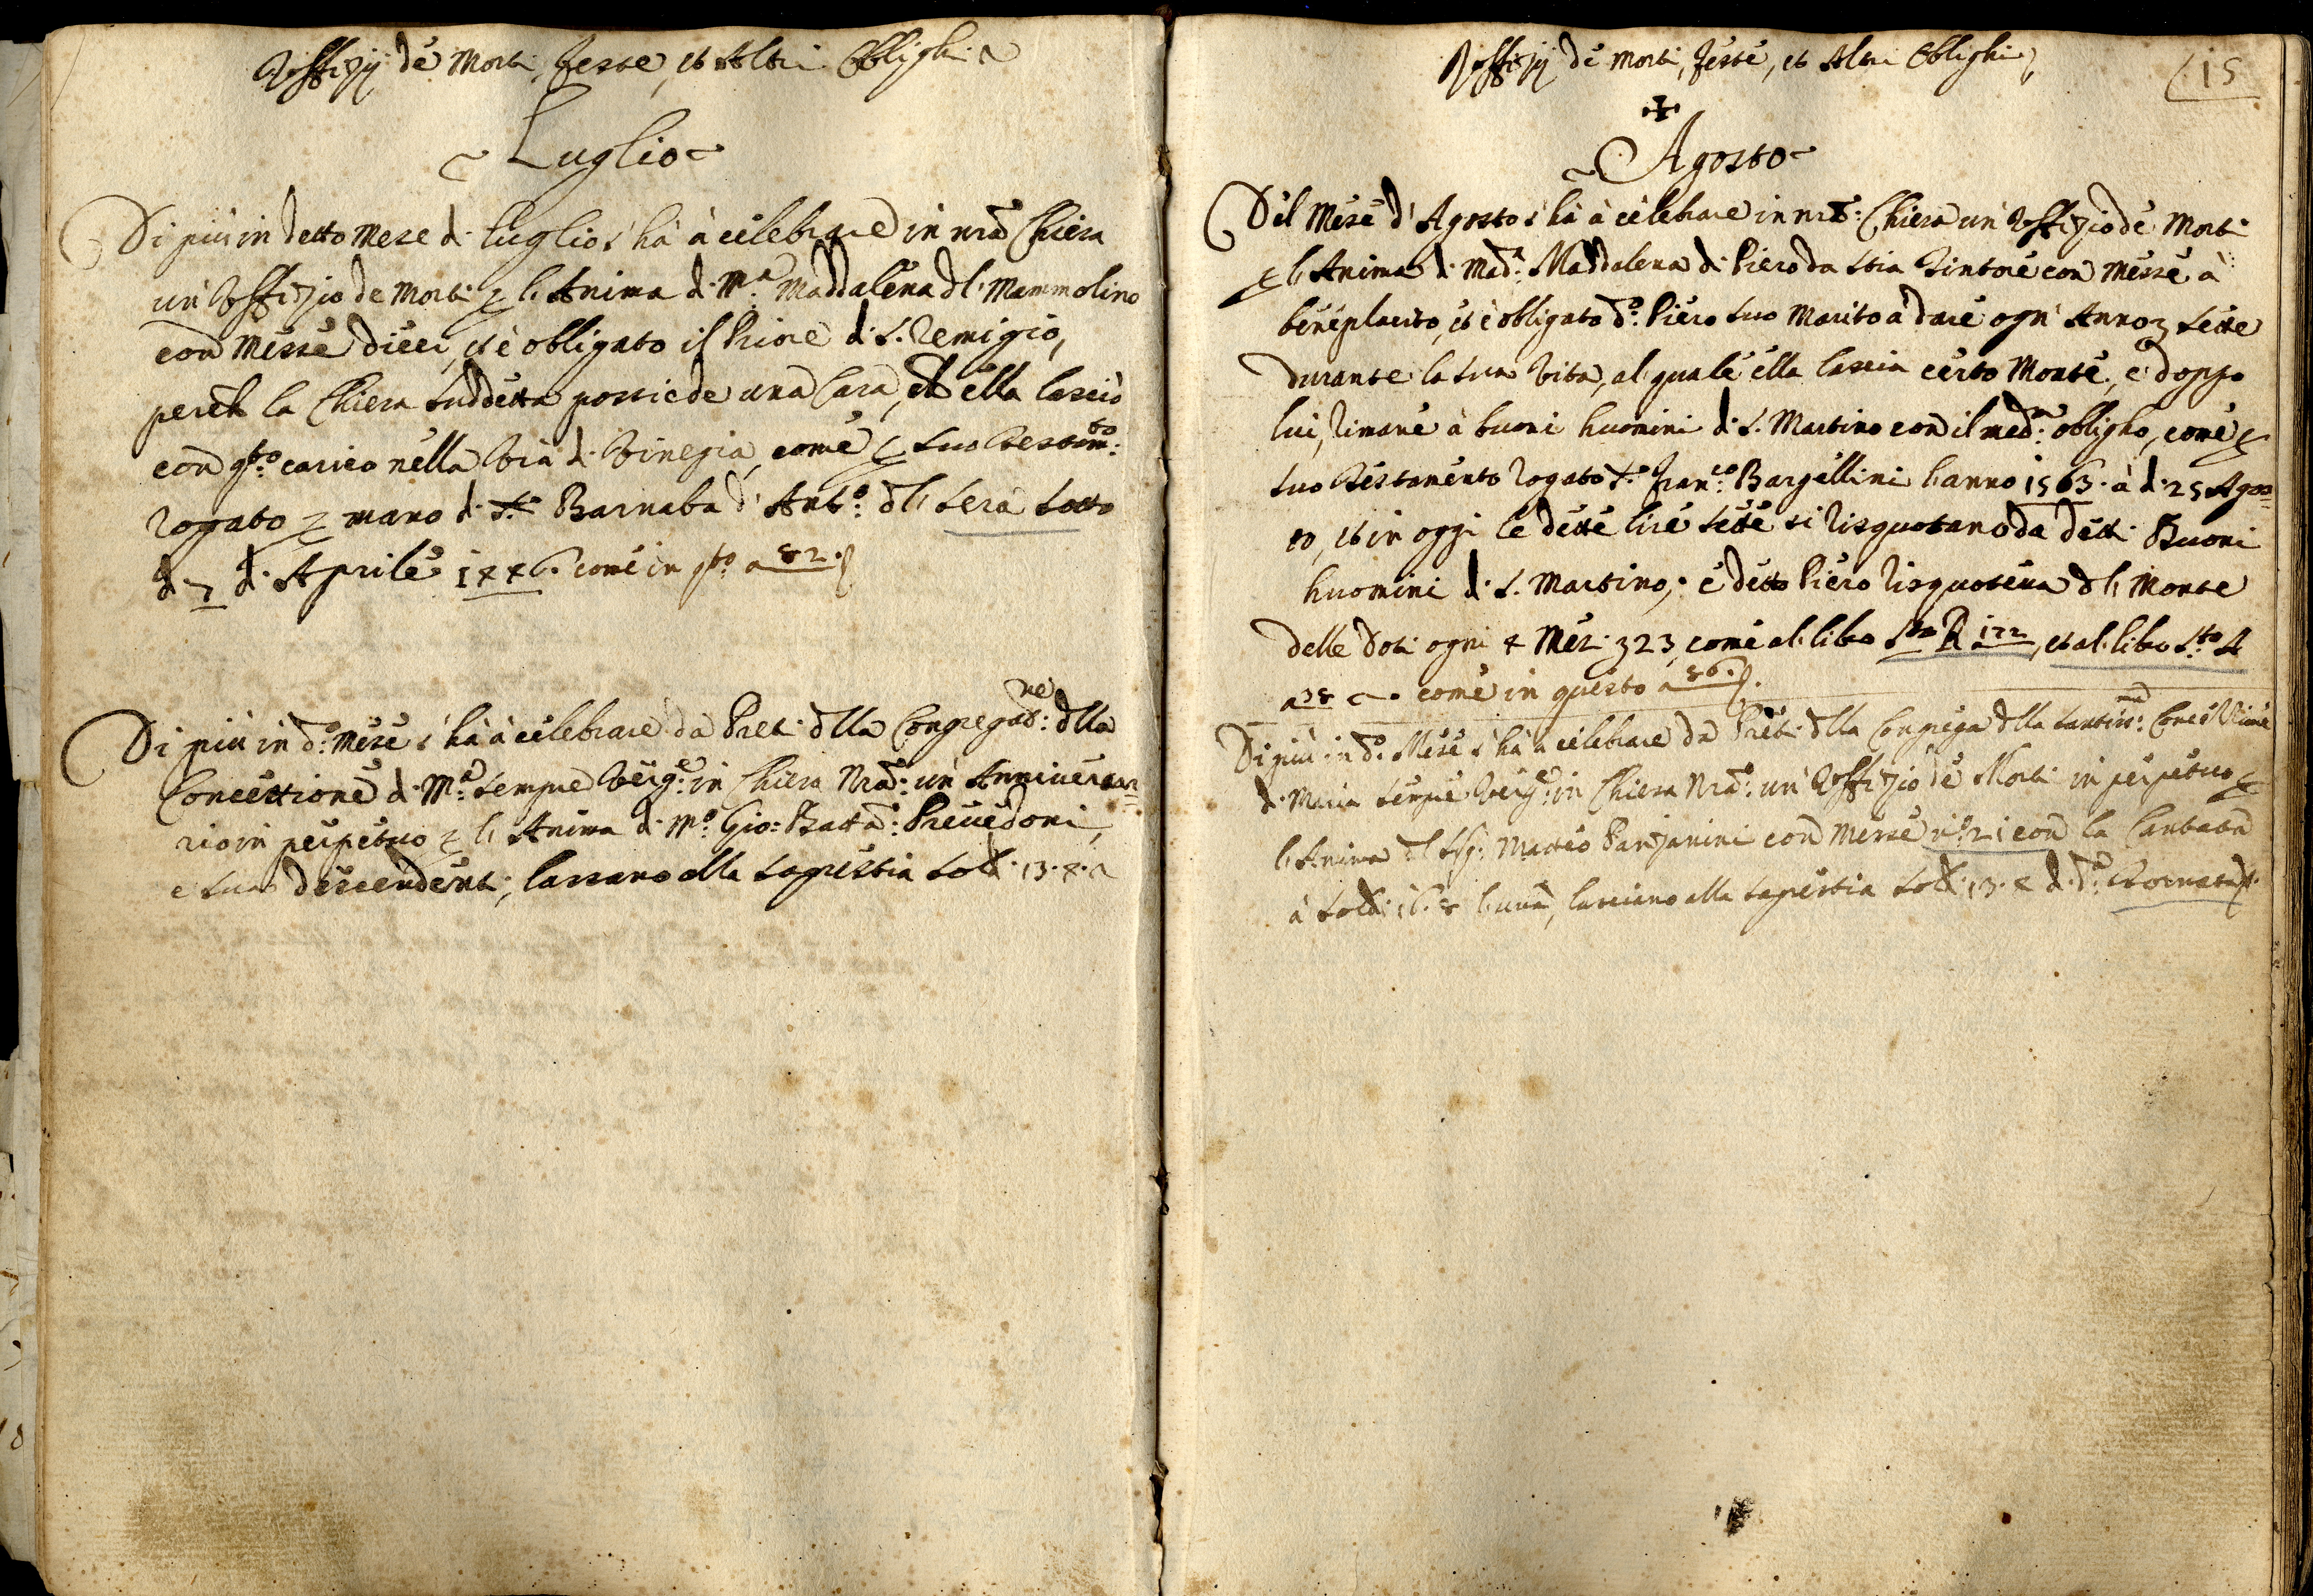 Uffizij de Morti, Feste, et Altri Oblighi
Luglio
Di più in detto Mese d. Luglio s'hà à celebrare in nrã Chiesa
un Uffizio de Morti p l'Anima d. M.ª Maddalena dl. Mammolino
con Messe dieci, et è obligato il Priore d. S. Remigio,
perch la Chiesa suddetta possiede una Casa, ch ella lasciò
con qto. carico nella Via d. Vinegia, come p suo Testam.to
rogato p mano d. Sr. Barnaba d'Ant.º dl Sera sotto
d. 7 d. Aprile 1446. come in qto a 82.
Di più in d.º Mese s'hà à celebrare da Preti dlla Congregað.ne dlla
Concettione d. M.ª sempre Verg.e in Chiesa Nrã: un Anniversa=
rio in perpetuo p l'Anima d. M.º Gio: Batta: Prevedoni,
e suoi descendenti, lassano alla sagrestia sold. 13.4.
Uffizij de Morti, Feste, et Altri Oblighi
15
Agosto
Del Mese d'Agosto s'hà à celebrare in nrã: Chiesa un Uffizio de Morti
p l'Anima d. Mad.ª Maddalena di Piero da Stia Tintore con Messe à
beneplacito, et è obligato d.º Piero suo Marito à dare ogn'Anno lire sette
durante la sua Vita, al quale ella lascia certo Monte, e doppo
lui, rimane à buoni huomini d. S. Martino con il med.º obligho, come p
suo Testamento rogato Sr. Fran.co Bargellini l'anno 1563. à d. 25 Agos=
to, et in oggi le dette lire sette si risquotano da detti Buoni
huomini d. S. Martino, e detto Piero risquoteva dl Monte
delle Doti ogni 4 Mesi 323, come al libro Sto R 122, et al libro Sto A
a 38 come in questo a 86.
Di più in d.º Mese s'hà à celebrare da Preti dlla Congrega dlla Santiss.ma Concettione
d. Maria sempre Verg.e in Chiesa Nrã: un Uffizio de Morti in perpetuo p
l'Anima dl Sig. Matteo Panzanini con Messe nº 21 con la Cantata
à soldi 16.8 l'una, lasciano alla sagrestia sold. 13.4 d. d.ª Tornata.